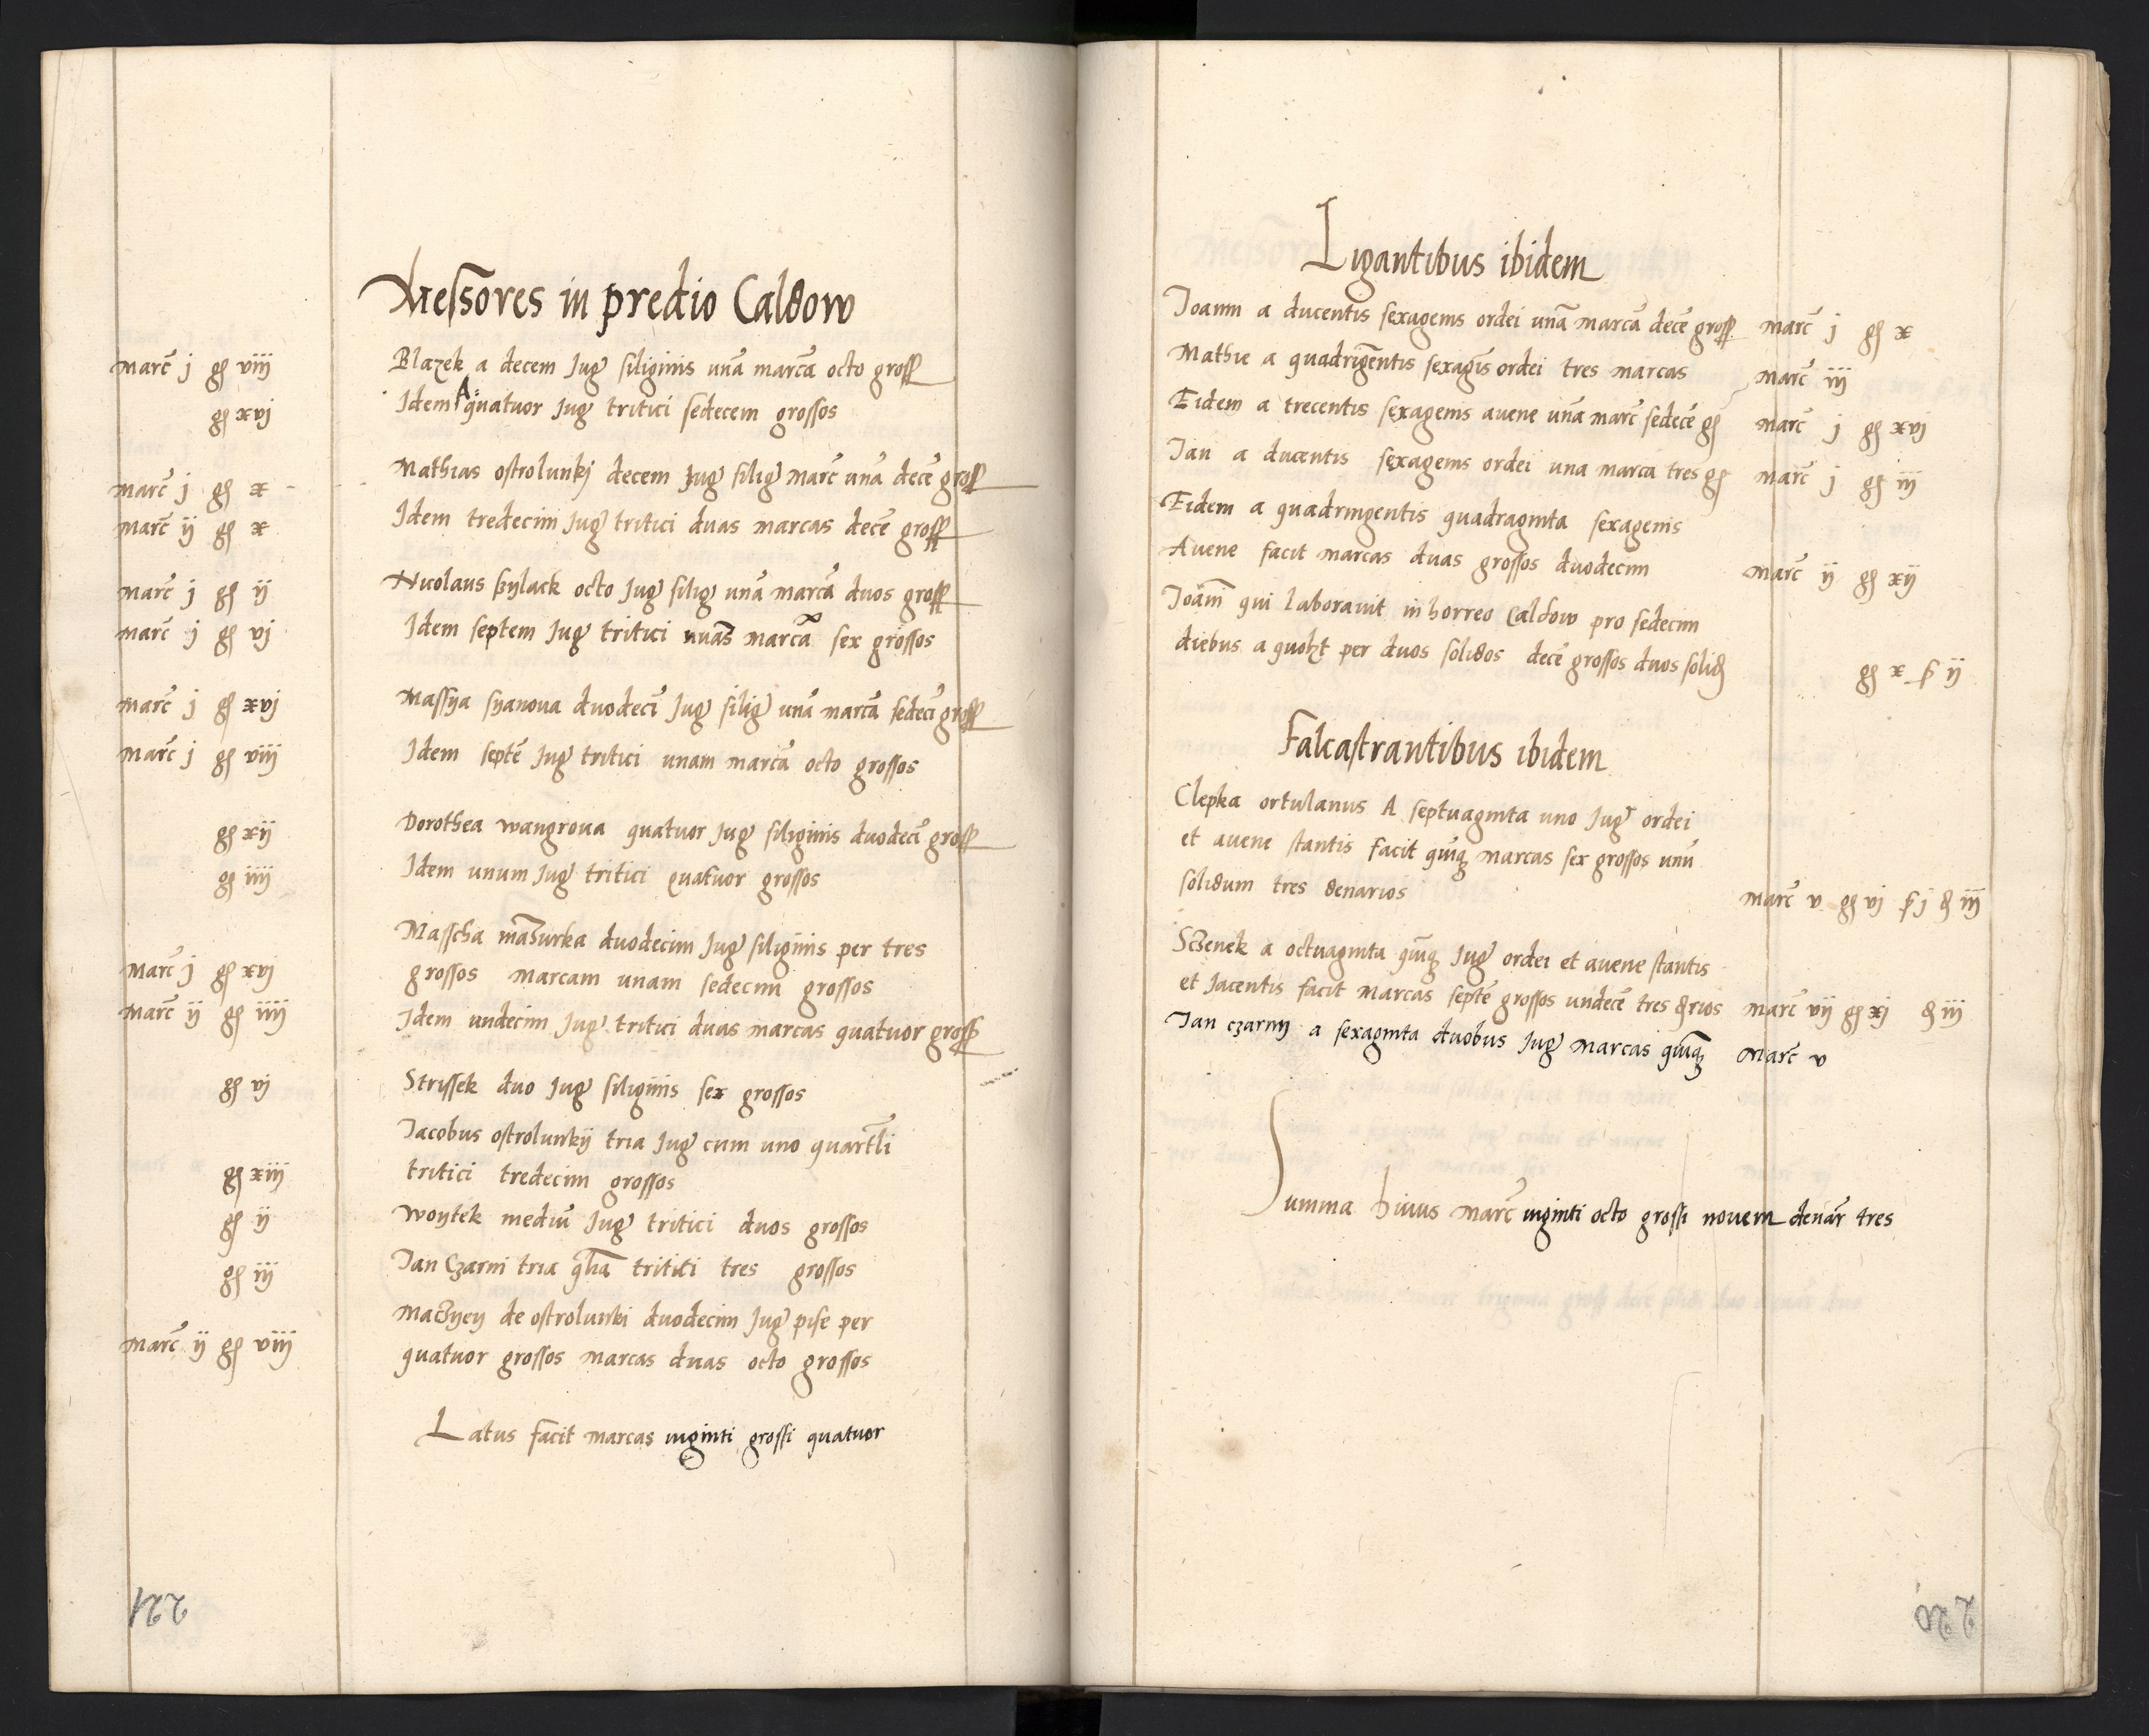 Messores in predio Caldow
marc̄ j gʒ viij Blazek a decem Jug siliginis unā marcā octo gross
gʒ xvj Idem A quatuor Jug tritici sedecem grossos
marc̄ j gʒ x Mathias ostrolunkj decem Jug silig marc̄ unā decē gross
marc̄ ij gʒ x Idem tredecim Jug tritici duas marcas decē gross
marc̄ j gʒ ij Nicolaus octo Jug silig unā marcā duos gross
marc̄ j gʒ vj Idem septem Jug tritici marcā sex grossos
marc̄ j gʒ xvj Massya syanova duodecī Jug silig unā marcā sedecī gross
marc̄ j gʒ viij Idem septē Jug tritici unam marcā octo grossos
gʒ xij Dorothea wangrova quatuor Jug siliginis duodecī gross
gʒ iiij Idem unum Jug tritici quatuor grossos
Masscha mazurka duodecim Jug siliginis per tres
marc̄ j gʒ xvj grossos marcam unam sedecim grossos
marc̄ ij gʒ iiij Idem undecim Jug tritici duas marcas quatuor gross
gʒ vj Strissek duo Jug siliginis sex grossos
Jacobus ostrolunkij tria Jug cum uno quartli
gʒ xiij tritici tredecim grossos
gʒ ij woytek mediū Jug tritici duos grossos
gʒ iij Jan Czarni tria tritici tres grossos
Maczyey de ostrolunki duodecim Jug pise per
marc̄ ij gʒ viij quatuor grossos marcas duas octo grossos
Latus facit marcas viginti grossi quatuor
221
Ligantibus ibidem
Joanni a ducentis sexagenis ordei unā marcā decē gross marc̄ j gʒ x
Mathie a quadrigentis sexagis ordei tres marcas marc̄ iij
Eidem a trecentis sexagenis avene unā marc̄ sedecē gʒ marc̄ j gʒ xvj
Jan a ducentis sexagenis ordei una marca tres gʒ marc̄ j gʒ iij
Eidem a quadringentis quadraginta sexagenis
Avene facit marcas duas grossos duodecim marc̄ ij gʒ xij
Joāni qui laboravit in horreo Caldow pro sedecim
diebus a quolzt per duos solidos decē grossos duos solid gʒ x ꝭ ij
Falcastrantibus ibidem
Clepka ortulanus A septuaginta uno Jug ordei
et avene stantis facit quīqꝫ marcas sex grossos unū
solidum tres denarios marc̄ v gʒ vj ꝭ j ꝺ iij
Sczenek a octuaginta quīqꝫ Jug ordei et avene stantis
et Jacentis facit marcas septē grossos undecē tres ꝺrios marc̄ vij gʒ xj ꝺ iij
Jan czarny a sexaginta duobus Jug marcas quīqꝫ Marc̄ v
Summa huius marc̄ viginti octo grossi novem denār tres
220